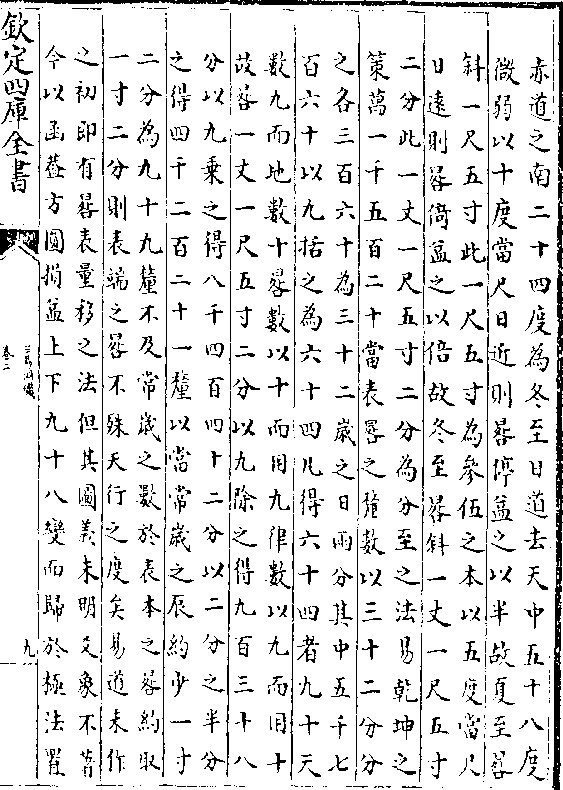 赤道之南二十四度為冬至日道去天中五十八度
微弱以十度當尺日近則晷停益之以半故夏至晷
斜一尺五寸此一尺五寸為參伍之本以五度當尺
日遠則晷倚益之以倍故冬至晷斜一丈一尺五寸
二分此一丈一尺五寸二分為分至之法易乾坤之
策萬一千五百二十當表晷之釐數以三十二分分
之各三百六十為三十二歲之日兩分其中五千七
百六十以九括之為六十四凡得六十四者九十天
數九而地數十晷數以十而用九律數以九而用十
故晷一丈一尺五寸二分以九除之得九百三十八
分以九乘之得八千四百四十二分以二分之半分
之得四千二百二十一釐以當常歲之辰約少一寸
二分為九十九釐不及常歲之數於表本之晷約取
一寸二分則表端之晷不殊天行之度矣易道未作
之初即有晷表量移之法但其圖義未明爻象不著
今以函蓋方圓損益上下九十八變而歸於極法置
欽定四庫全書
卷二
九